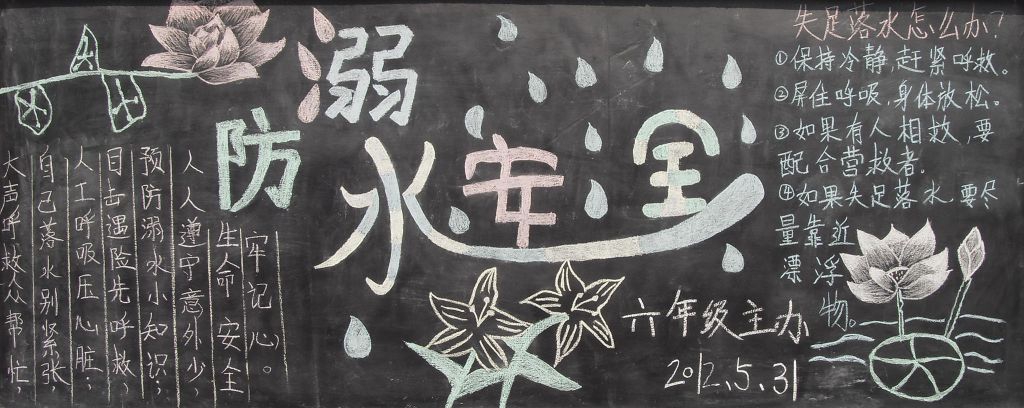 防溺水安全
大声呼救众帮忙
自己落水别紧张
人工呼吸压心脏;
目击遇险先呼救
预防溺水小知识;
人人遵守意外少
生命安全
牢记心。
失足落水怎么办?
①保持冷静,赶紧呼救。
②屏住呼吸,身体放松。
③如果有人相救,要
配合营救者.
④如果失足落水,要尽
量靠近
漂浮
物。
六年级主办
2012.5.31